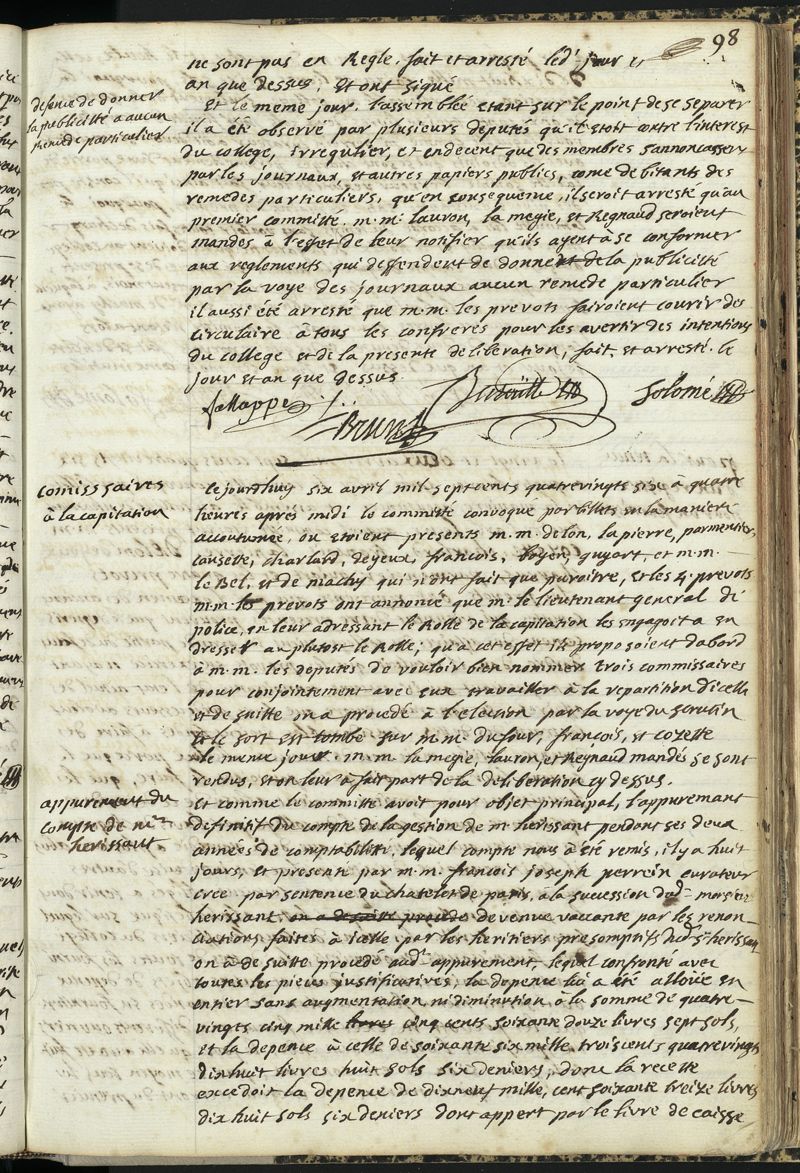 98
ne sont pas en Regle. fait et arresté led. jour et
an que dessus, Et ont signé
defense de donner
la publicitté a aucun
remede particulier
Et le meme jour. l'assemblée etant sur le point de se separer
il a été observé par plusieurs députés qu'il etoit contre l'interest
du college, irregulier, et indecent que des membres s'annoncassent
par les journaux, et autres papiers publics, come debitants des
remedes particuliers, qu'en consequence, il seroit arresté qu'au
premier committé. m.m. lauron, la megie, et Regnaud seroient
mandes à l'effet de leur notifier qu'ils ayent à se conformer
aux reglements qui deffendent de donner de la publicitté
par la voye des journaux aucun remede particulier
il aussi été arresté que m.m. les prevots fairoient courir des
circulaire à tous les confreres pour les avertir des intentions
du college et de la presente deliberation, fait et arresté. le
jour et an que dessus.
Solomé
Brun
comissaires
à la capitation
Ce jourdhuy six avril mil sept cents quatrevingts six à quatre
heures après midi le committé convoqué par billets en la maniere
accoutumée, ou etoient presents m.m. delon, la pierre, parmentier,
causette, charlard, deyeux, françois, boyer, guyart, et m.m.
le Bel, et de machy qui n'ont fait que paroitre, et les 4. prevots
m.m. les prevots ont annoncé que m. le lieutenant general de
police, en leur adressant le Rolle de la capitation les engagoit a en
dresser au plutost le Rolle; qu'à cet effet ils proposoient dabord
à m.m. les deputés de vouloir bien nommer trois commissaires
pour conjointement avec eux travailler à la repartition d'icelle
et de suitte on a procedé à l'election par la voye du scrutin
et le sort est tombé sur m.m. dufour, françois, et cozette
le meme jour. m.m. la megie, lauron, et Reynaud mandés se sont
rendus, et on leur à fait part de la deliberation cy dessus.
appurement du
compte de mr.
herissant
Et comme le committé avoit pour objet principal, l'appuremant
definitif du compte de la gestion de m. herissant pendant ses deux
années de comptabilitté, lequel compte nous a été remis, il y a huit
jours, et presenté par m.m. francois joseph perrein curateur
creé par sentence du chatelet de paris, a la succession dud. monsieur
herissant, on a de suitte procedé devenue vaccante par les renon-
ciations faites à icelle par les heritiers presomptifs dud. Sr. herissant
on à de suitte procedé aud. appurement, lequel confronté avec
toutes les pieces justificatives, la depence lui a été allouée en
entier sans augmentation ni diminution, à la somme de quatre-
vingts cinq mille livres cinq cents soixante douze livres sept sols,
et la depence à celle de soixante six mille trois cents quatrevingts
dix huit livres huit sols six deniers, donc la recette
excedoit la depence de dix neuf mille, cent soixante treize livres
dix huit sols six deniers dont appert par le livre de caisse